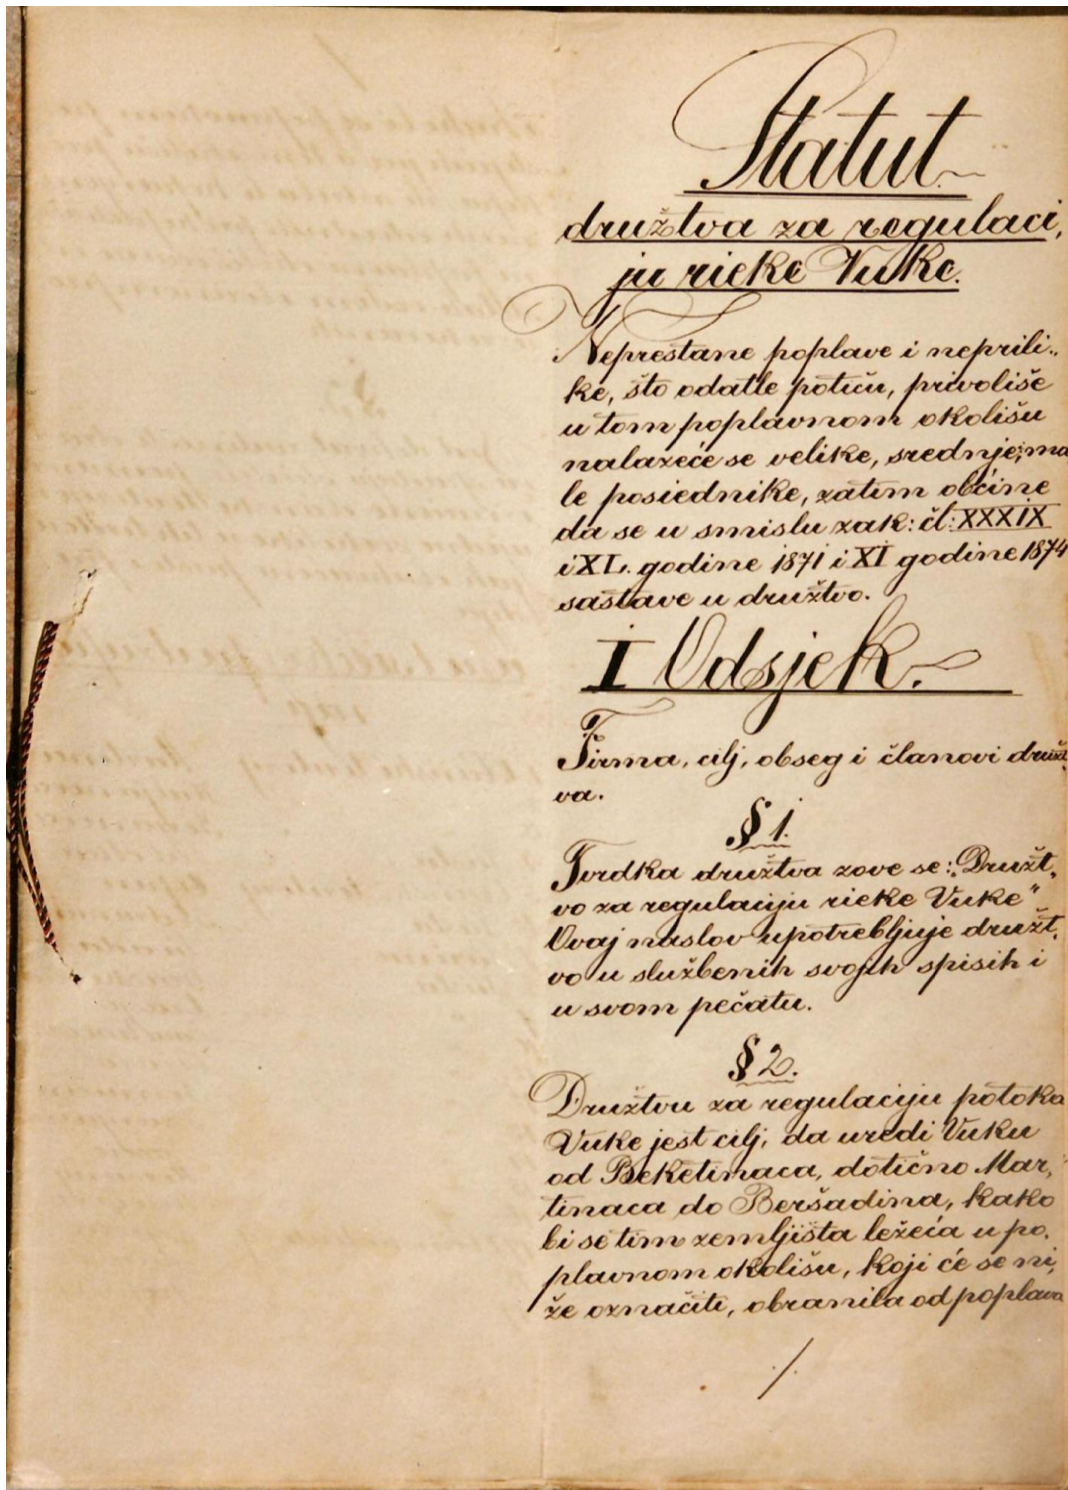 Statut
družtva za regulaci,
ju rieke Vuke.
Neprestane poplave i neprili„
ke, što odatle potiču, privoliše
u tom poplavnom okolišu
nalazeće se velike, srednje, ma
le posjednike, zatim občine
da se u smislu zak: čl: XXXIX
i XL. godine 1871 i XI godine 1874
sastave u družtvo.
I Odsjek.
Firma, cilj, obseg i članovi družt,
va.
§ 1.
Tvrdka družtva zove se: „Družt,
vo za regulaciju rieke Vuke"
Ovaj naslov upotrebljuje družt,
vo u službenih svojih spisih i
u svom pečatu.
§ 2.
Družtvu za regulaciju potoka
Vuke jest cilj, da uredi Vuku
od Beketinaca, dotično Mar,
tinaca do Beršadina, kako
bi se tim zemljišta ležeća u po,
plavnom okolišu, koji će se ni,
že označiti, obranila od poplava
./.